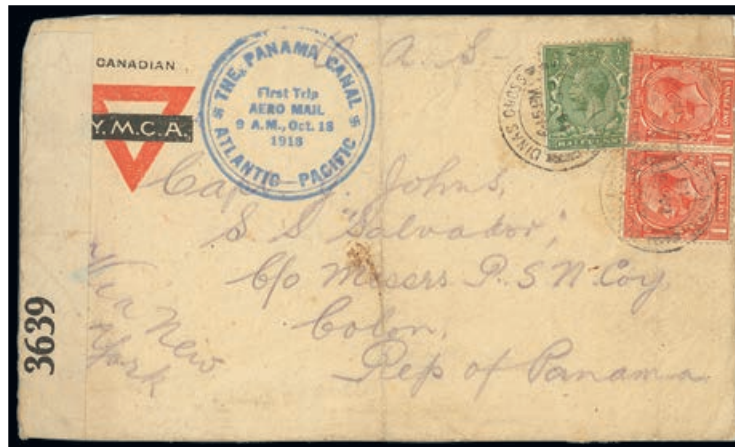 CANADIAN
Y.M.C.A.
THE PANAMA CANAL
First Trip
AERO MAIL
9 A.M., Oct. 18
1918
ATLANTIC - PACIFIC
DINAS CROSS
HALFPENNY
ONE PENNY
1
ONE PENNY
1
Capt J. Johns,
S S "Salvador,"
c/o Messrs P.S.N. Coy
Colon,
Rep of Panama
Via New
York
3639